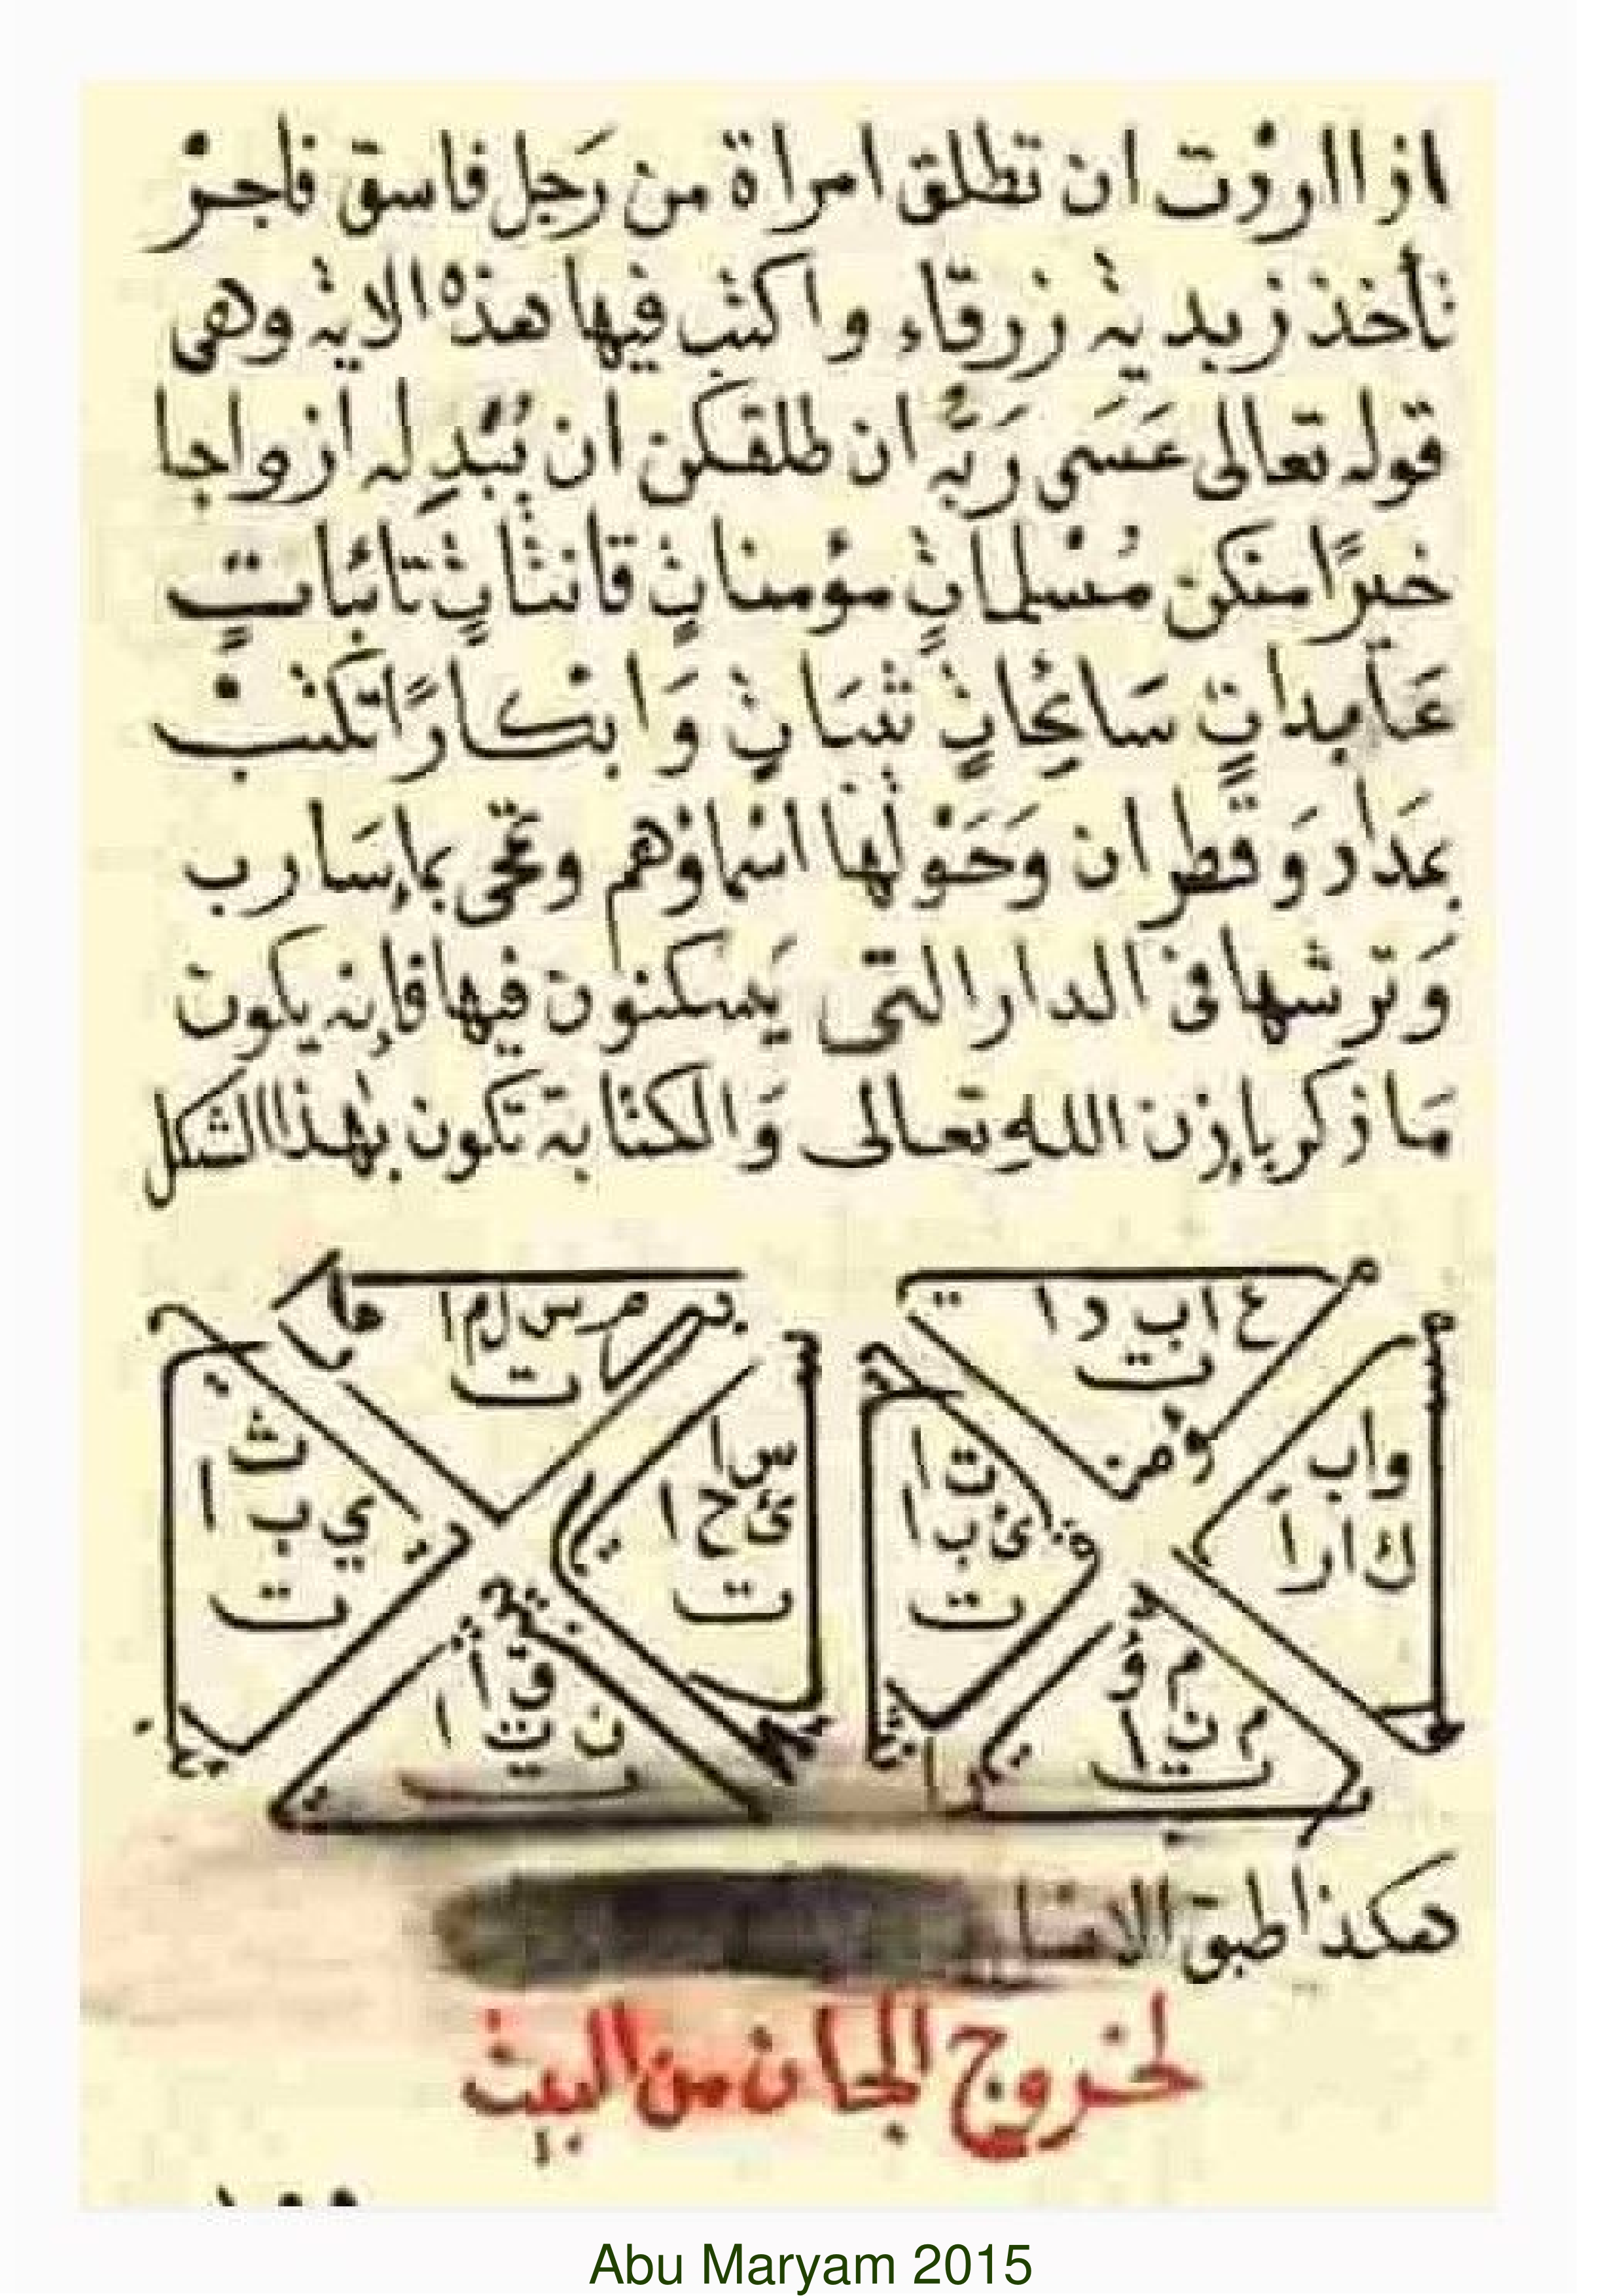 اذا اردْت ان تطلق امراة من رَجل فاسق فاجرْ
تأخذ زبدية زرقاء واكتب فيها هذه الاية وهي
قوله تعالى عَسَى رَبّه ان طلقكن ان يُبْدِله ازواجا
خيرًا منكن مُسْلماتٍ مؤمناتٍ قانتاتٍ تائباتٍ
عَابداتٍ سَائحِاتٍ ثيَباتٍ وَابْكارًا تكتبْ
بمَداد وَقطران وَحَوْلهَا اسْماؤهم وتمحى بماء سَارب
وَترشها في الدار التي يَسكنون فيها فإنه يكون
مَا ذكر بإذن اللهِ تعالى وَالكتابة تكون بهٰذا الشكل
م س ل م ا
ت
ع ا ب د ا
ت
ث
ي ب ا
ت
س ا
ئ ح ا
ت
ت ا
ئ ب ا
ت
و اب
ك ا ر اً
ق أ
ن ت ا
ت
م ؤ
م ن ا
ت
هكذا طبق
لخروج الجان من البيت
Abu Maryam 2015